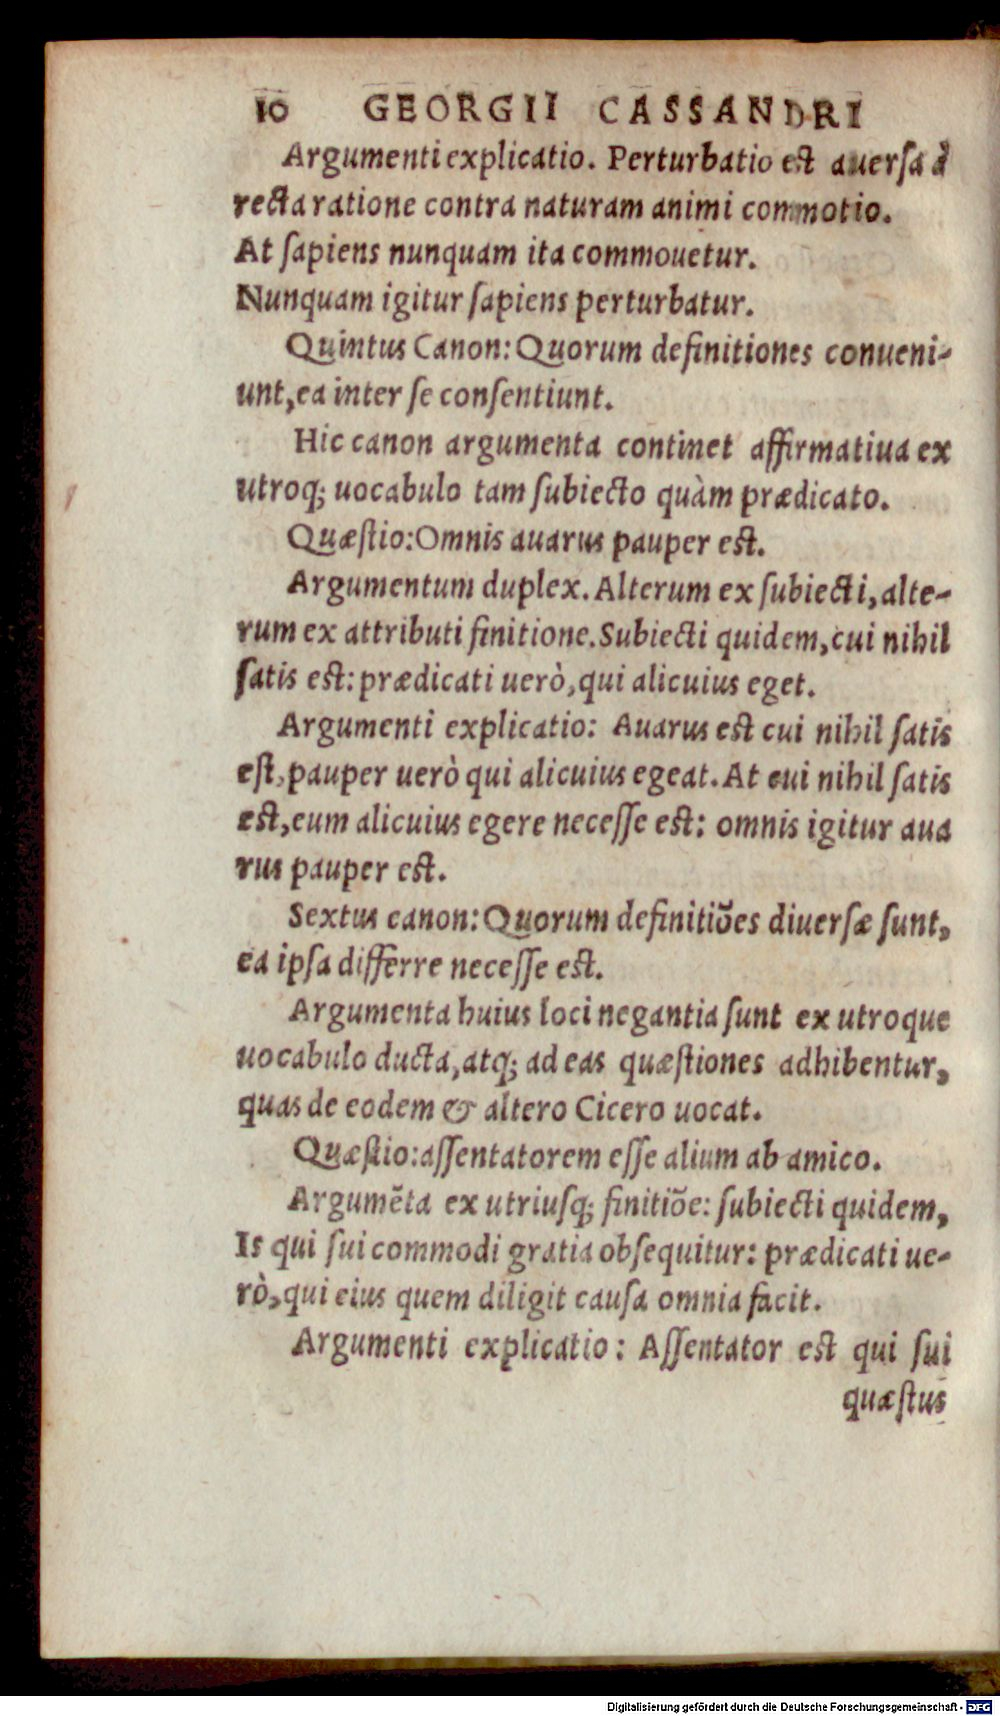 10 GEORGII CASSANDRI
Argumenti explicatio. Perturbatio est auersa à
recta ratione contra naturam animi commotio.
At ſapiens nunquam ita commouetur.
Nunquam igitur ſapiens perturbatur.
Quintus Canon: Quorum definitiones conueni-
unt, ea inter ſe conſentiunt.
Hic canon argumenta continet affirmatiua ex
utroq; uocabulo tam ſubiecto quàm prædicato.
Quæſtio: Omnis auarus pauper est.
Argumentum duplex. Alterum ex ſubiecti, alte-
rum ex attributi finitione. Subiecti quidem, cui nihil
ſatis est: prædicati uerò, qui alicuius eget.
Argumenti explicatio: Auarus est cui nihil ſatis
eſt, pauper uerò qui alicuius egeat. At cui nihil ſatis
est, eum alicuius egere neceſſe est: omnis igitur aua
rus pauper est.
Sextus canon: Quorum definitiões diuerſæ ſunt,
ea ipſa differre neceſſe est.
Argumenta huius loci negantia ſunt ex utroque
uocabulo ducta, atq; ad eas quæſtiones adhibentur,
quas de eodem & altero Cicero uocat.
Quæſtio: aſſentatorem eſſe alium ab amico.
Argumẽta ex utriuſq; finitiõe: ſubiecti quidem,
Is qui ſui commodi gratia obſequitur: prædicati ue-
rò, qui eius quem diligit cauſa omnia facit.
Argumenti explicatio: Aſſentator est qui ſui
quæſtus
Digitalisierung gefördert durch die Deutsche Forschungsgemeinschaft - DFG